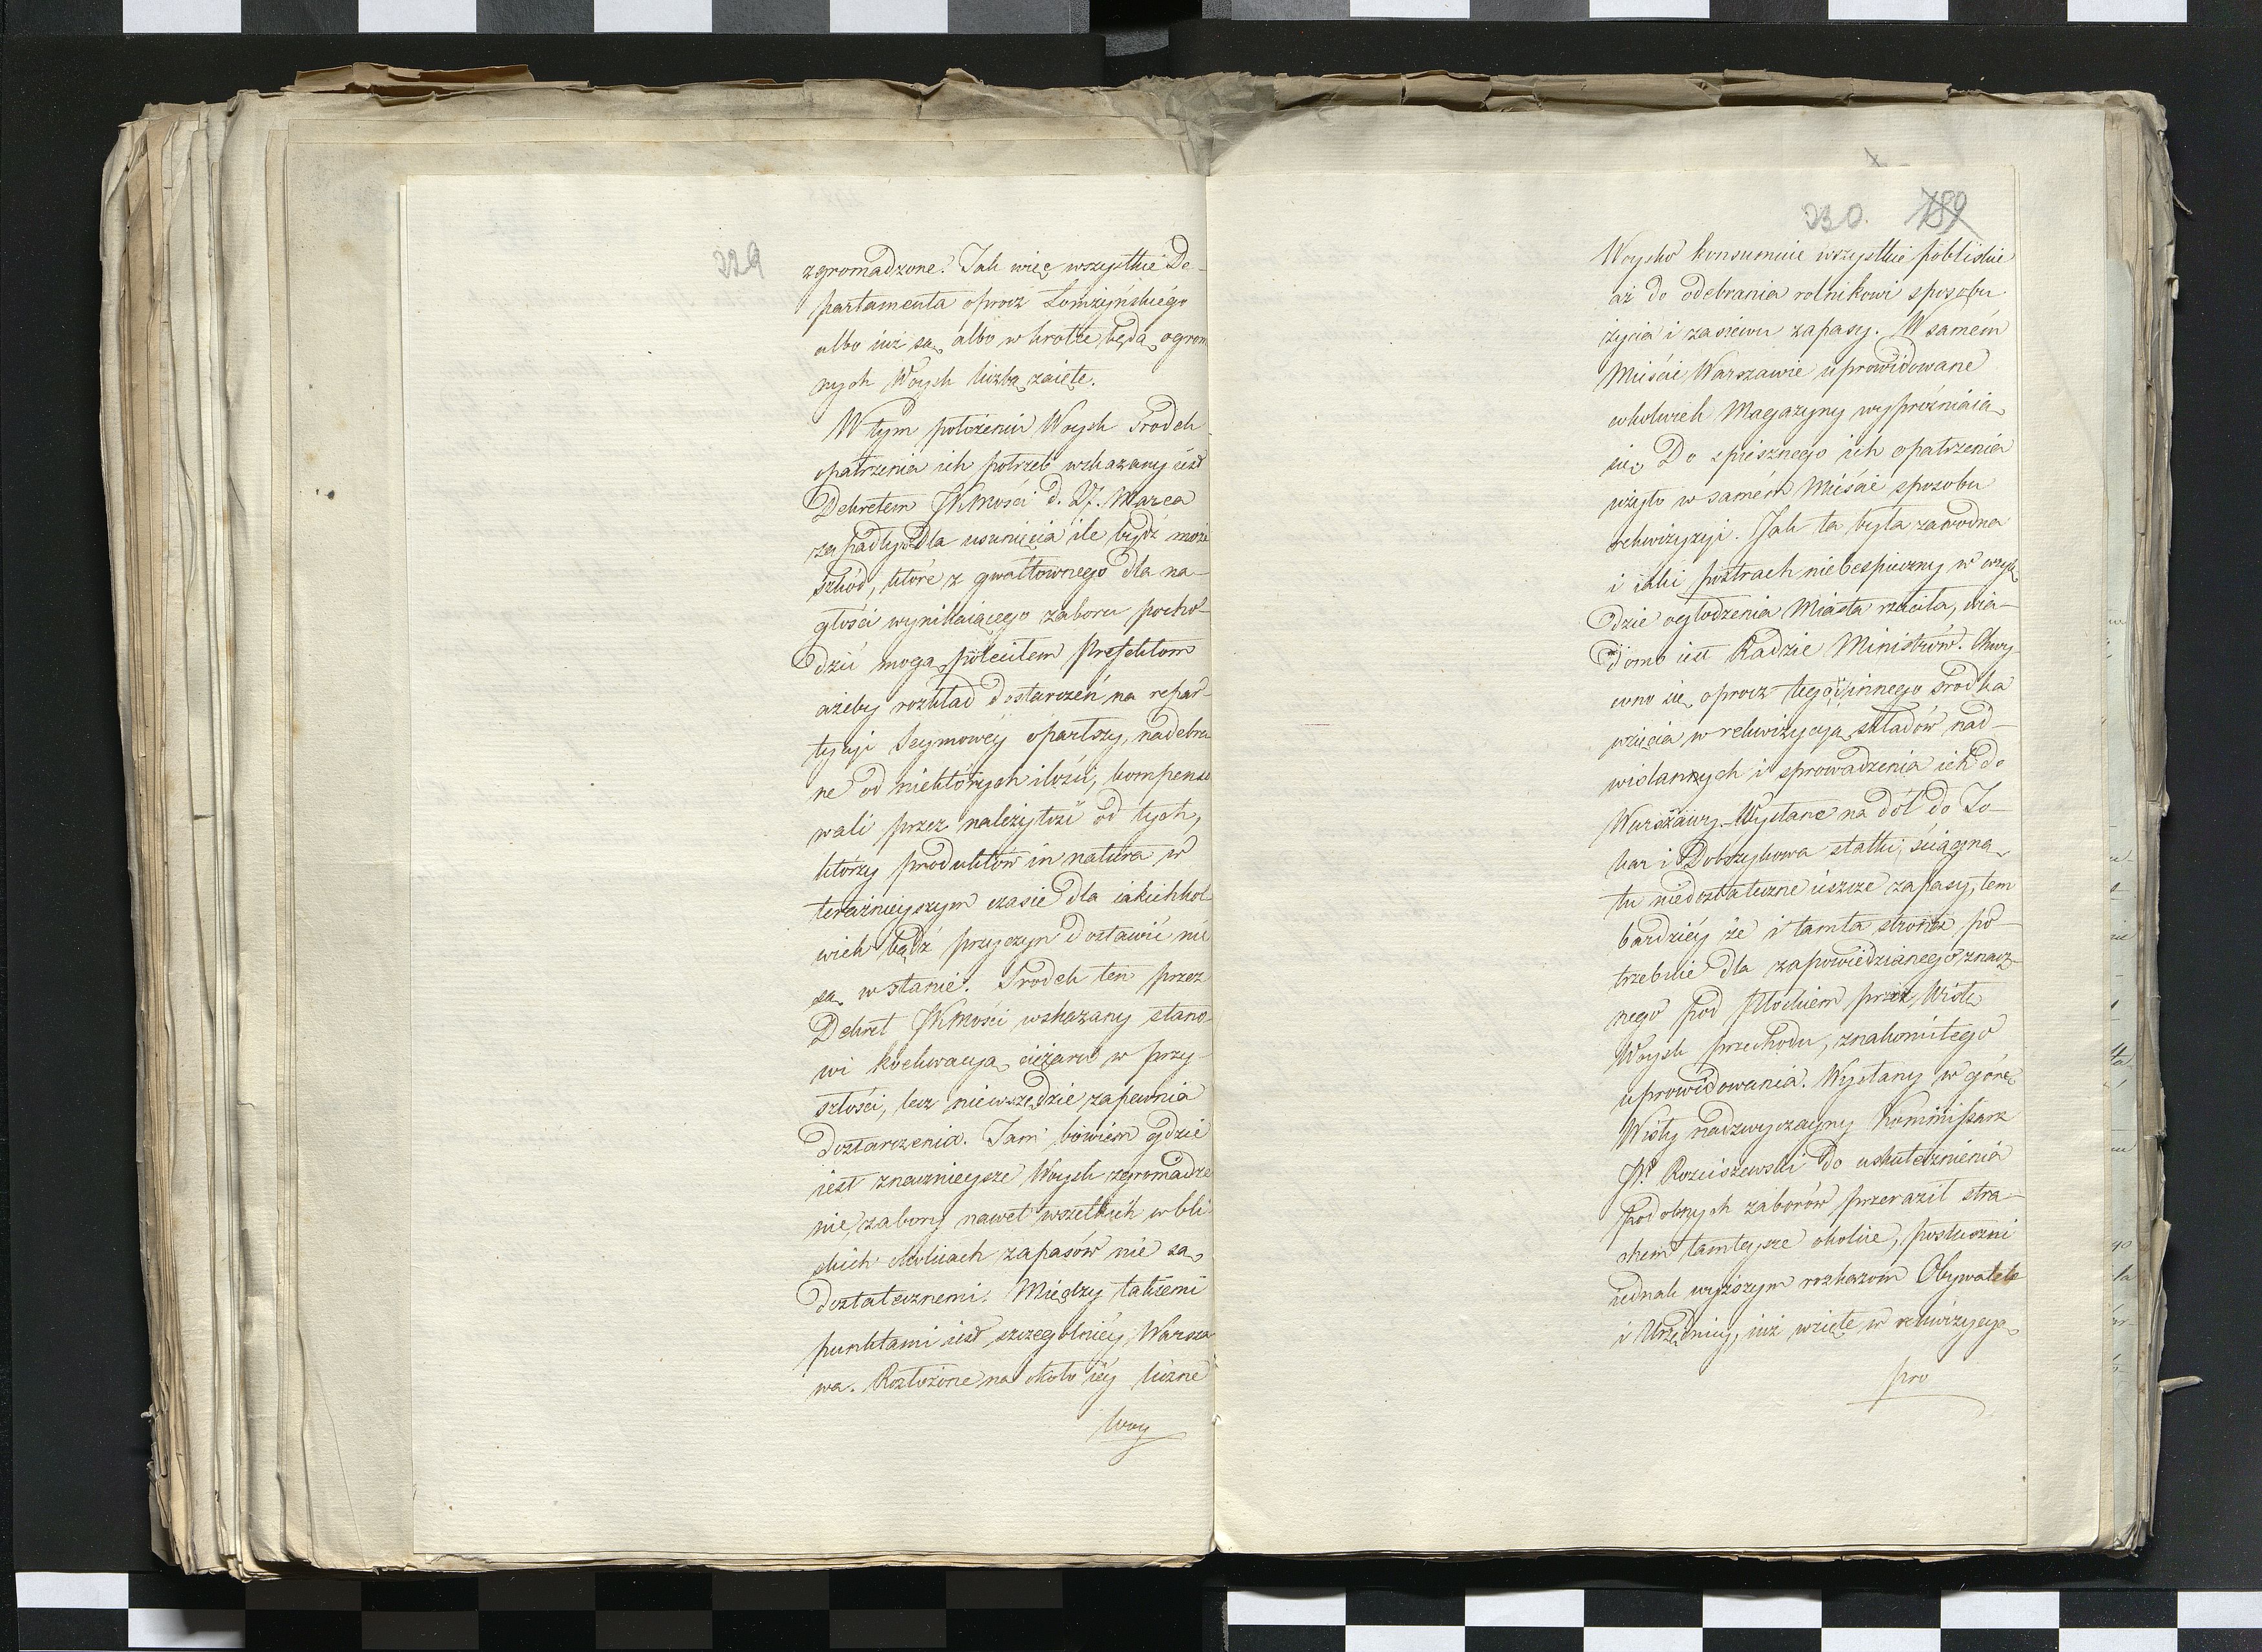 229
zgromadzone. Tak więc wszystkie De-
partamenta oprocz Łomżyńskiego
albo iuż są albo wkrotce będą ogrom
nych Woysk liczbą zaięte.
W tym położeniu Woysk Srodek
opatrzenia ich potrzeb wskazany iest
Dekretem JKMości d. 27. Marca
zapadłym dla usunięcia ile bydź może
szkód, które z gwałtownego dla na-
głości wynikaiącego zaboru pocho-
dzić mogą, poleciłem Prefektom
ażeby rozkład dostarczeń na repar-
tycyi Seymowey oparłszy, nadebra
ne od niektórych ilości, kompenso
wali przez należytość od tych,
którzy produktów in natura w
teraźnieyszym czasie dla iakichkol-
wiek bądź przyczyn dostawić nie
są w stanie. Srodek ten przez
Dekret JKMości wskazany stano-
wi koekwacyą ciężaru w przy-
szłości, lecz niewszędzie zapewnia
dostarczenia. Tam bowiem gdzie
iest znacznieysze Woysk zgromadze
nie, zabory nawet wszelkich w bli
skich okolicach zapasów nie są
dostatecznemi. Między takiemi
punktami iest szczegolniey Warsza
wa. Rozłożone na około iéy liczne
Woy
230. 789
Woysko konsumuie wszystkie pobliskie
aż do odebrania rolnikowi sposobu
życia i zasiewu zapasy. W samém
Mieście Warszawie uprowidowane
wkołwiek Magazyny wyprożniaią
się. Do spiesznego ich opatrzenia
użyto w samém Mieście sposobu
rekwizycyi. Jak ta była zawodna
i iaki postrach niebespieczny w wzglę
dzie ogłodzenia Miasta rzuciła, wia-
domo iest Radzie Ministrów. Chwy
cono się oprocz tego innego srodka
wzięcia w rekwizycyą składów nad-
wiślannych i sprowadzenia ich do
Warszawy. Wysłane na dół do To-
kar i Dobrzykowa statki, ściągną
tu niedostateczne ieszcze zapasy, tem
bardziéy że i tamta strona po-
trzebuie dla zapowiedzianego znacz-
nego pod Płockiem przez Wisłę
Woysk przechodu, znakomitego
uprowidowania. Wysłany w górę
Wisły nadzwyczayny Kommissarz
JP. Rościszewski do uskutecznienia
podobnych zaborów przeraził stra-
chem tamteysze okolice, posłuszni
iednak wyższym rozkazom Obywatele
i Urzędnicy, iuż wzięte w rekwizycyą
pro